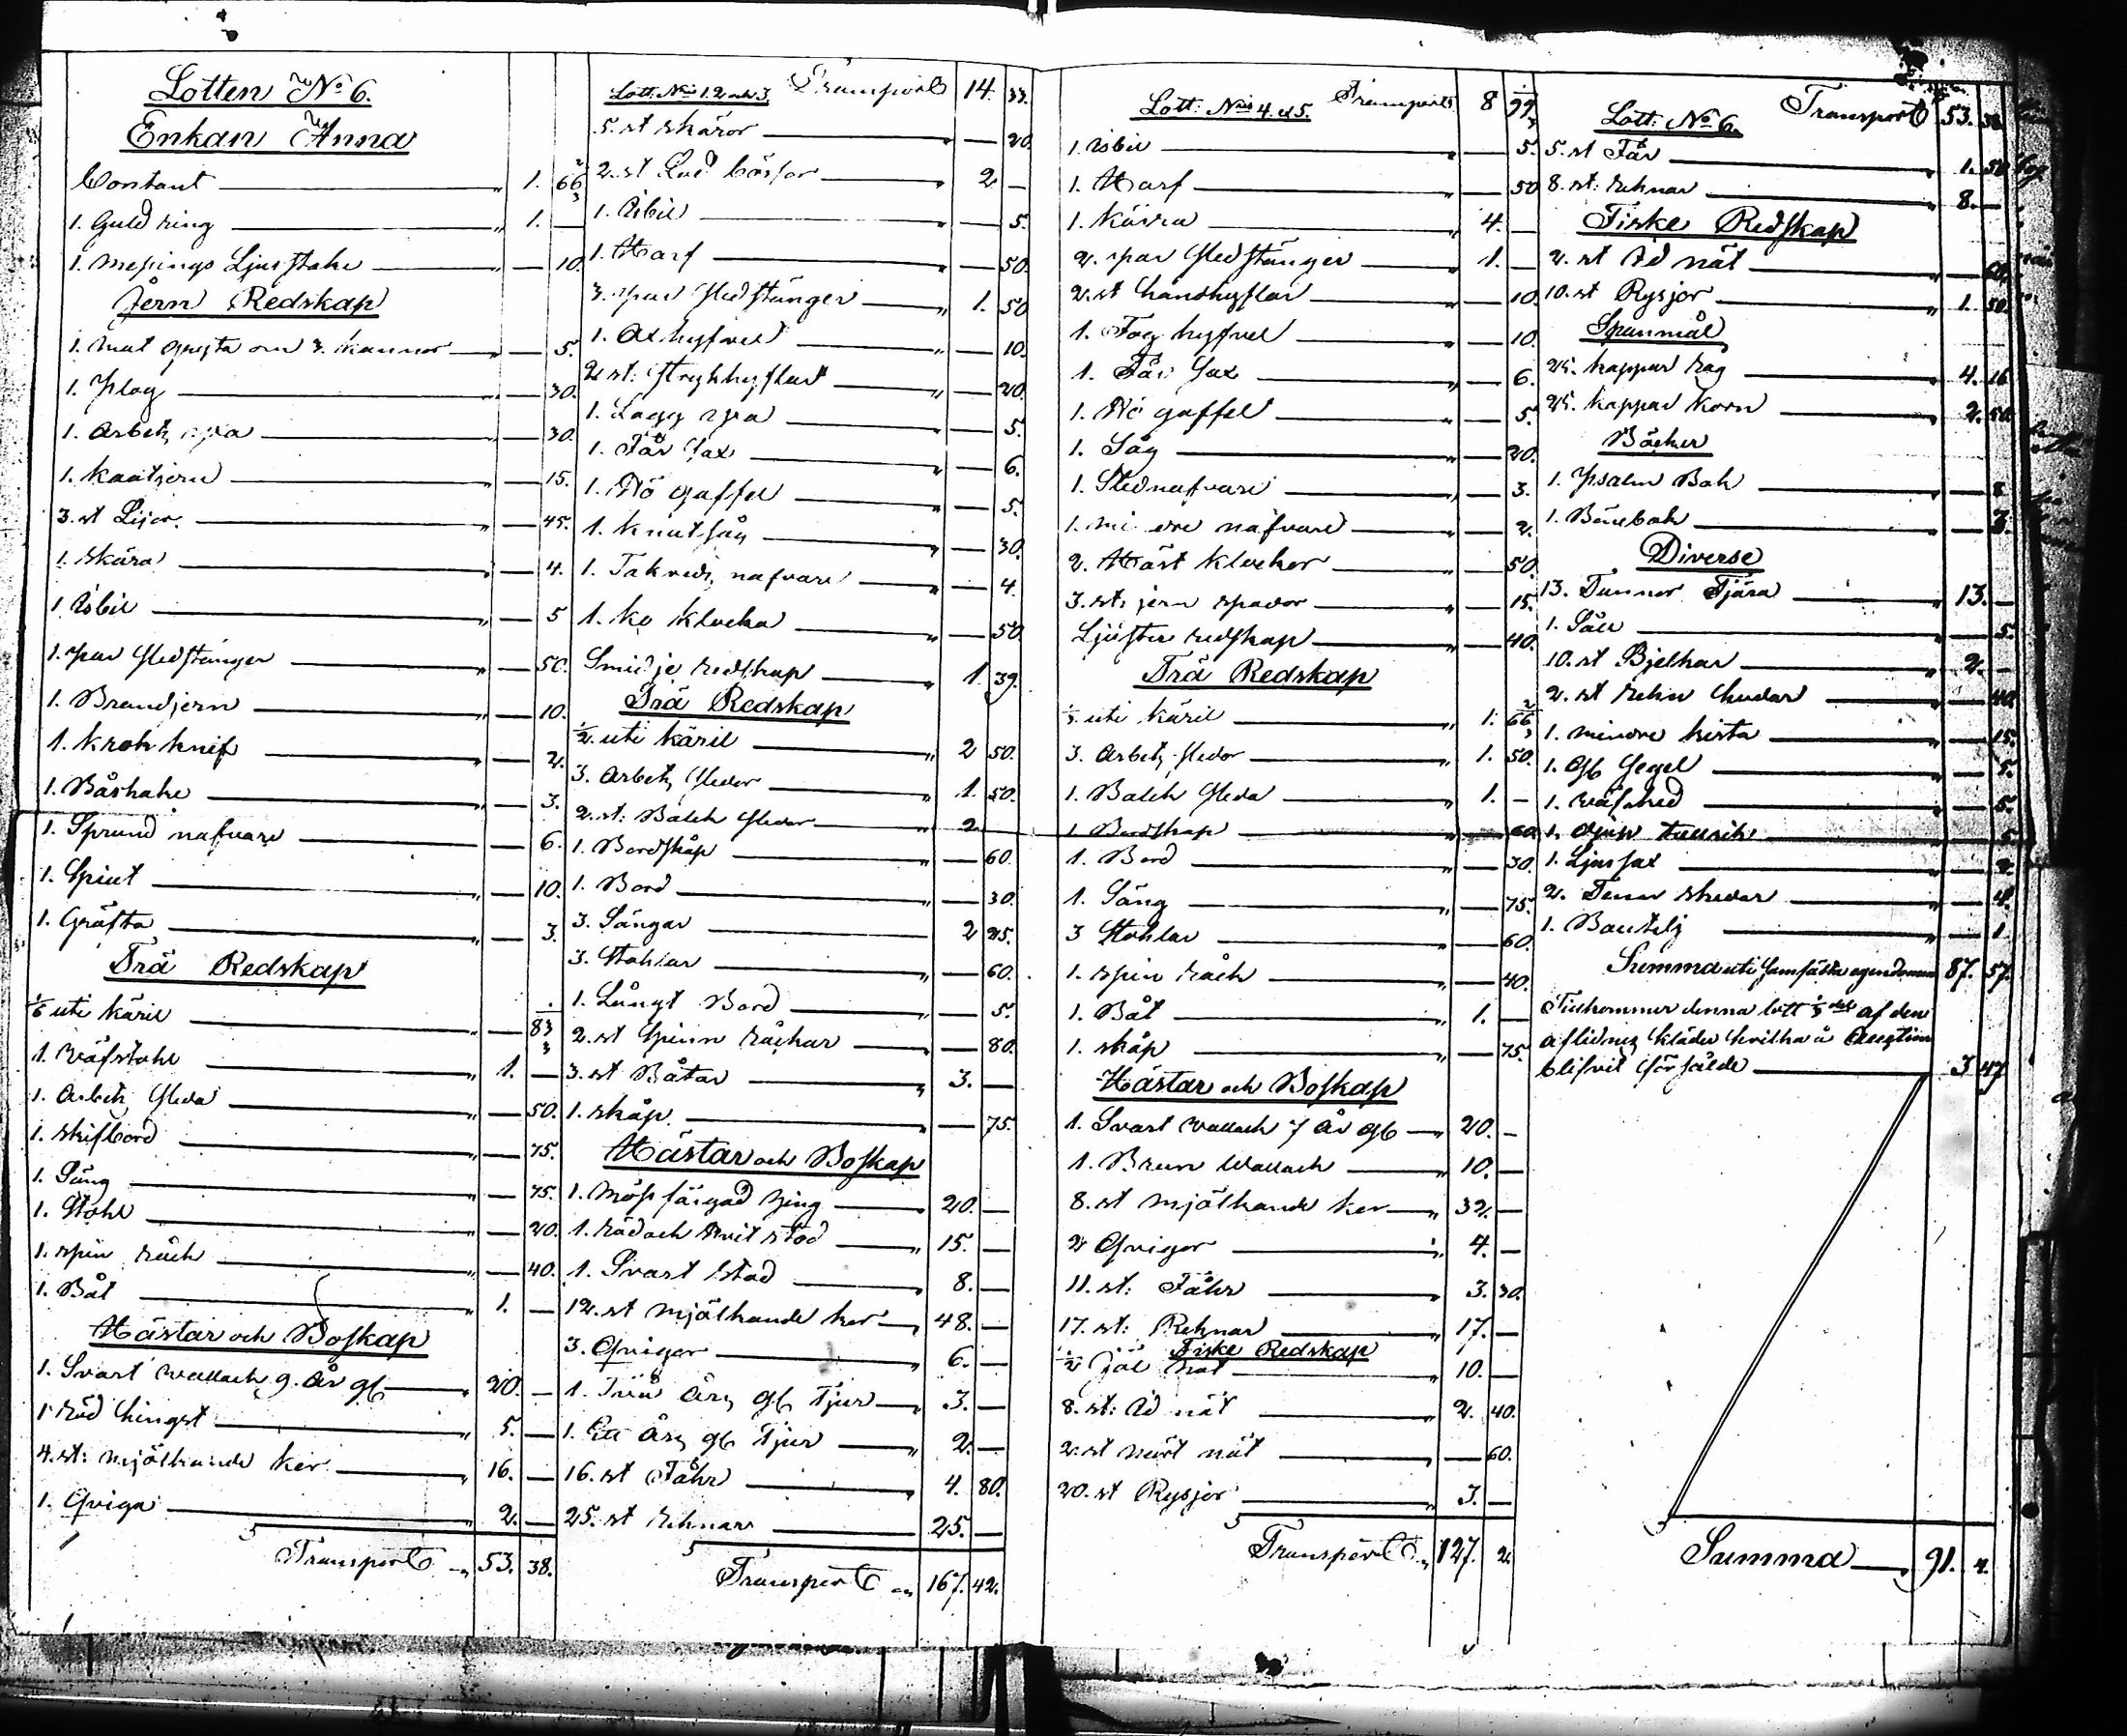 Lotten No 6.
Enkan Anna
Contant 1. 66 2/3
1. Guld ring 1. —
1. Messings Ljusstake — 10.
Jern Redskap
1. mat gryta om 3. kannor — 5.
1. plog — 30.
1. Arbetz yxa — 30.
1. kaatjern — 15.
3. st Lijor — 45.
1. skära — 4.
1. Isbil — 5
1. par Sledstänger — 50.
1. Brandjern — 10.
1. krok knif — 2.
1. Båshake — 3.
1. Sprund nafvare — 6.
1. Spiut — 10.
1. Gräfta — 3.
Trä Redskap
1/6 uti käril — 83 1/3
1. Wäfstohl 1. —
1. Arbetz Sleda — 50.
1. skifbord — 75.
1. Säng — 75.
1. Stohl — 20.
1. spin råck — 40.
1. Båt 1. —
Hästar och Boskap
1. Svart Wallach 9. år gl 20. —
1 röd hingst 5. —
4. st: mjölkande kor 16. —
1. Qviga 2. —
Transport 53. 38.
Lott. No 1. 2 och 3. Transport 14. 33.
5. st skäror — 20
2. st Lod bössor 2 —
1. Isbil — 5.
1. Harf — 50.
3. par Sledstänger 1. 50
1. Ax hyfvel — 10.
2 st: Strykhyflar — 20.
1. Lagg yxa — 5.
1. Får Sax — 6.
1. Hö gaffel — 5.
1. knutsåg — 30.
1. Takveds nafvare — 4.
1. ko klocka — 50
Smidje redskap 1. 39.
Trä Redskap
1/2 uti käril 2 50.
3. Arbetz Sledor 1. 50.
2. st: Balck Sledor 2
1. Bordskåp — 60.
1. Bord — 30.
3. Sängar 2 25.
3. Stohlar — 60.
1. Långt Bord — 5.
2. st Spinn råckar — 80.
3. st Båtar 3. —
1. skåp. — 75.
Hästar och Boskap
1. möss färgad hing 20. —
1. röd och hvit stod 15. —
1. Svart stod 8. —
12. st mjölkande kor 48. —
3. Qvigor 6. —
1. Två års gl Tjur 3. —
1. Ett års gl Tjur 2. —
16. st Fåhr 4. 80.
25. st rehnar 25. —
Transport 167. 42.
Lott: No 4. & 5. Transport 8 99
1. Isbil — 5.
1. Harf — 50
1. kärra 4. —
2. par Sledstänger 1. —
2. st handhyflar — 10
1. Fog hyfvel — 10.
1. Får Sax — 6.
1. Hö gaffel — 5.
1. Såg — 20.
1. Slednafvare — 3.
1. mindre nafvare — 2.
2. Häst klockor — 50.
3. st: jern spador — 15.
Ljuster redskap — 40.
Trä Redskap
1/3 uti käril 1. 66 2/3
3. Arbetz Sledor 1. 50.
1. Balck Sleda 1. —
1 Bordskap — 60
1. Bord — 30.
1. Säng — 75.
3 Stohlar — 60.
1. spin råck — 40.
1. Båt 1. —
1. skåp — 75.
Hästar och Boskap
1. Svart Wallach 7 år gl 20. —
1. Brun Wallach 10. —
8. st mjölkande kor 32. —
2 Qvigor 4. —
11. st: Fåhr 3. 30.
17. st: Rehnar 17. —
Fiske Redskap
1/2 Själ Not 10. —
8. st: Id nät 2. 40.
2. st mört nät — 60.
20. st Rysjor 3. —
Transport 127. 2
Lott: No 6. Transport 53. 38
5. st Får 1. 50
8. st: rehnar 8. —
Fiske Redskap
2. st Id nät — 60.
10. st Rysjor 1. 50.
Spanmål
25. kappar råg 4. 16
25. kappar korn 2. 50.
Böcker
1. Psalm Bok — 8
1. Bönebok — 3.
Diverse
13. Tunnor Tjära 13. —
1. Såll — 5.
10. st Bjelkar 2. —
2. st rehn hudar — 40.
1. mindre kista — 15.
1. gl Segel — 5.
1. Wäfsked — 5.
1. djup tallrik — 5
1. Ljus sax — 2.
2. Tenn skedar — 4.
1. Boutelj — 1.
Summa uti samfälda egendomen 87. 57.
Tillkommer denna lott 1/6 del af den
aflidnes kläder hvilka å Auction
blifvit försålde 3 47
Summa 91. 4.